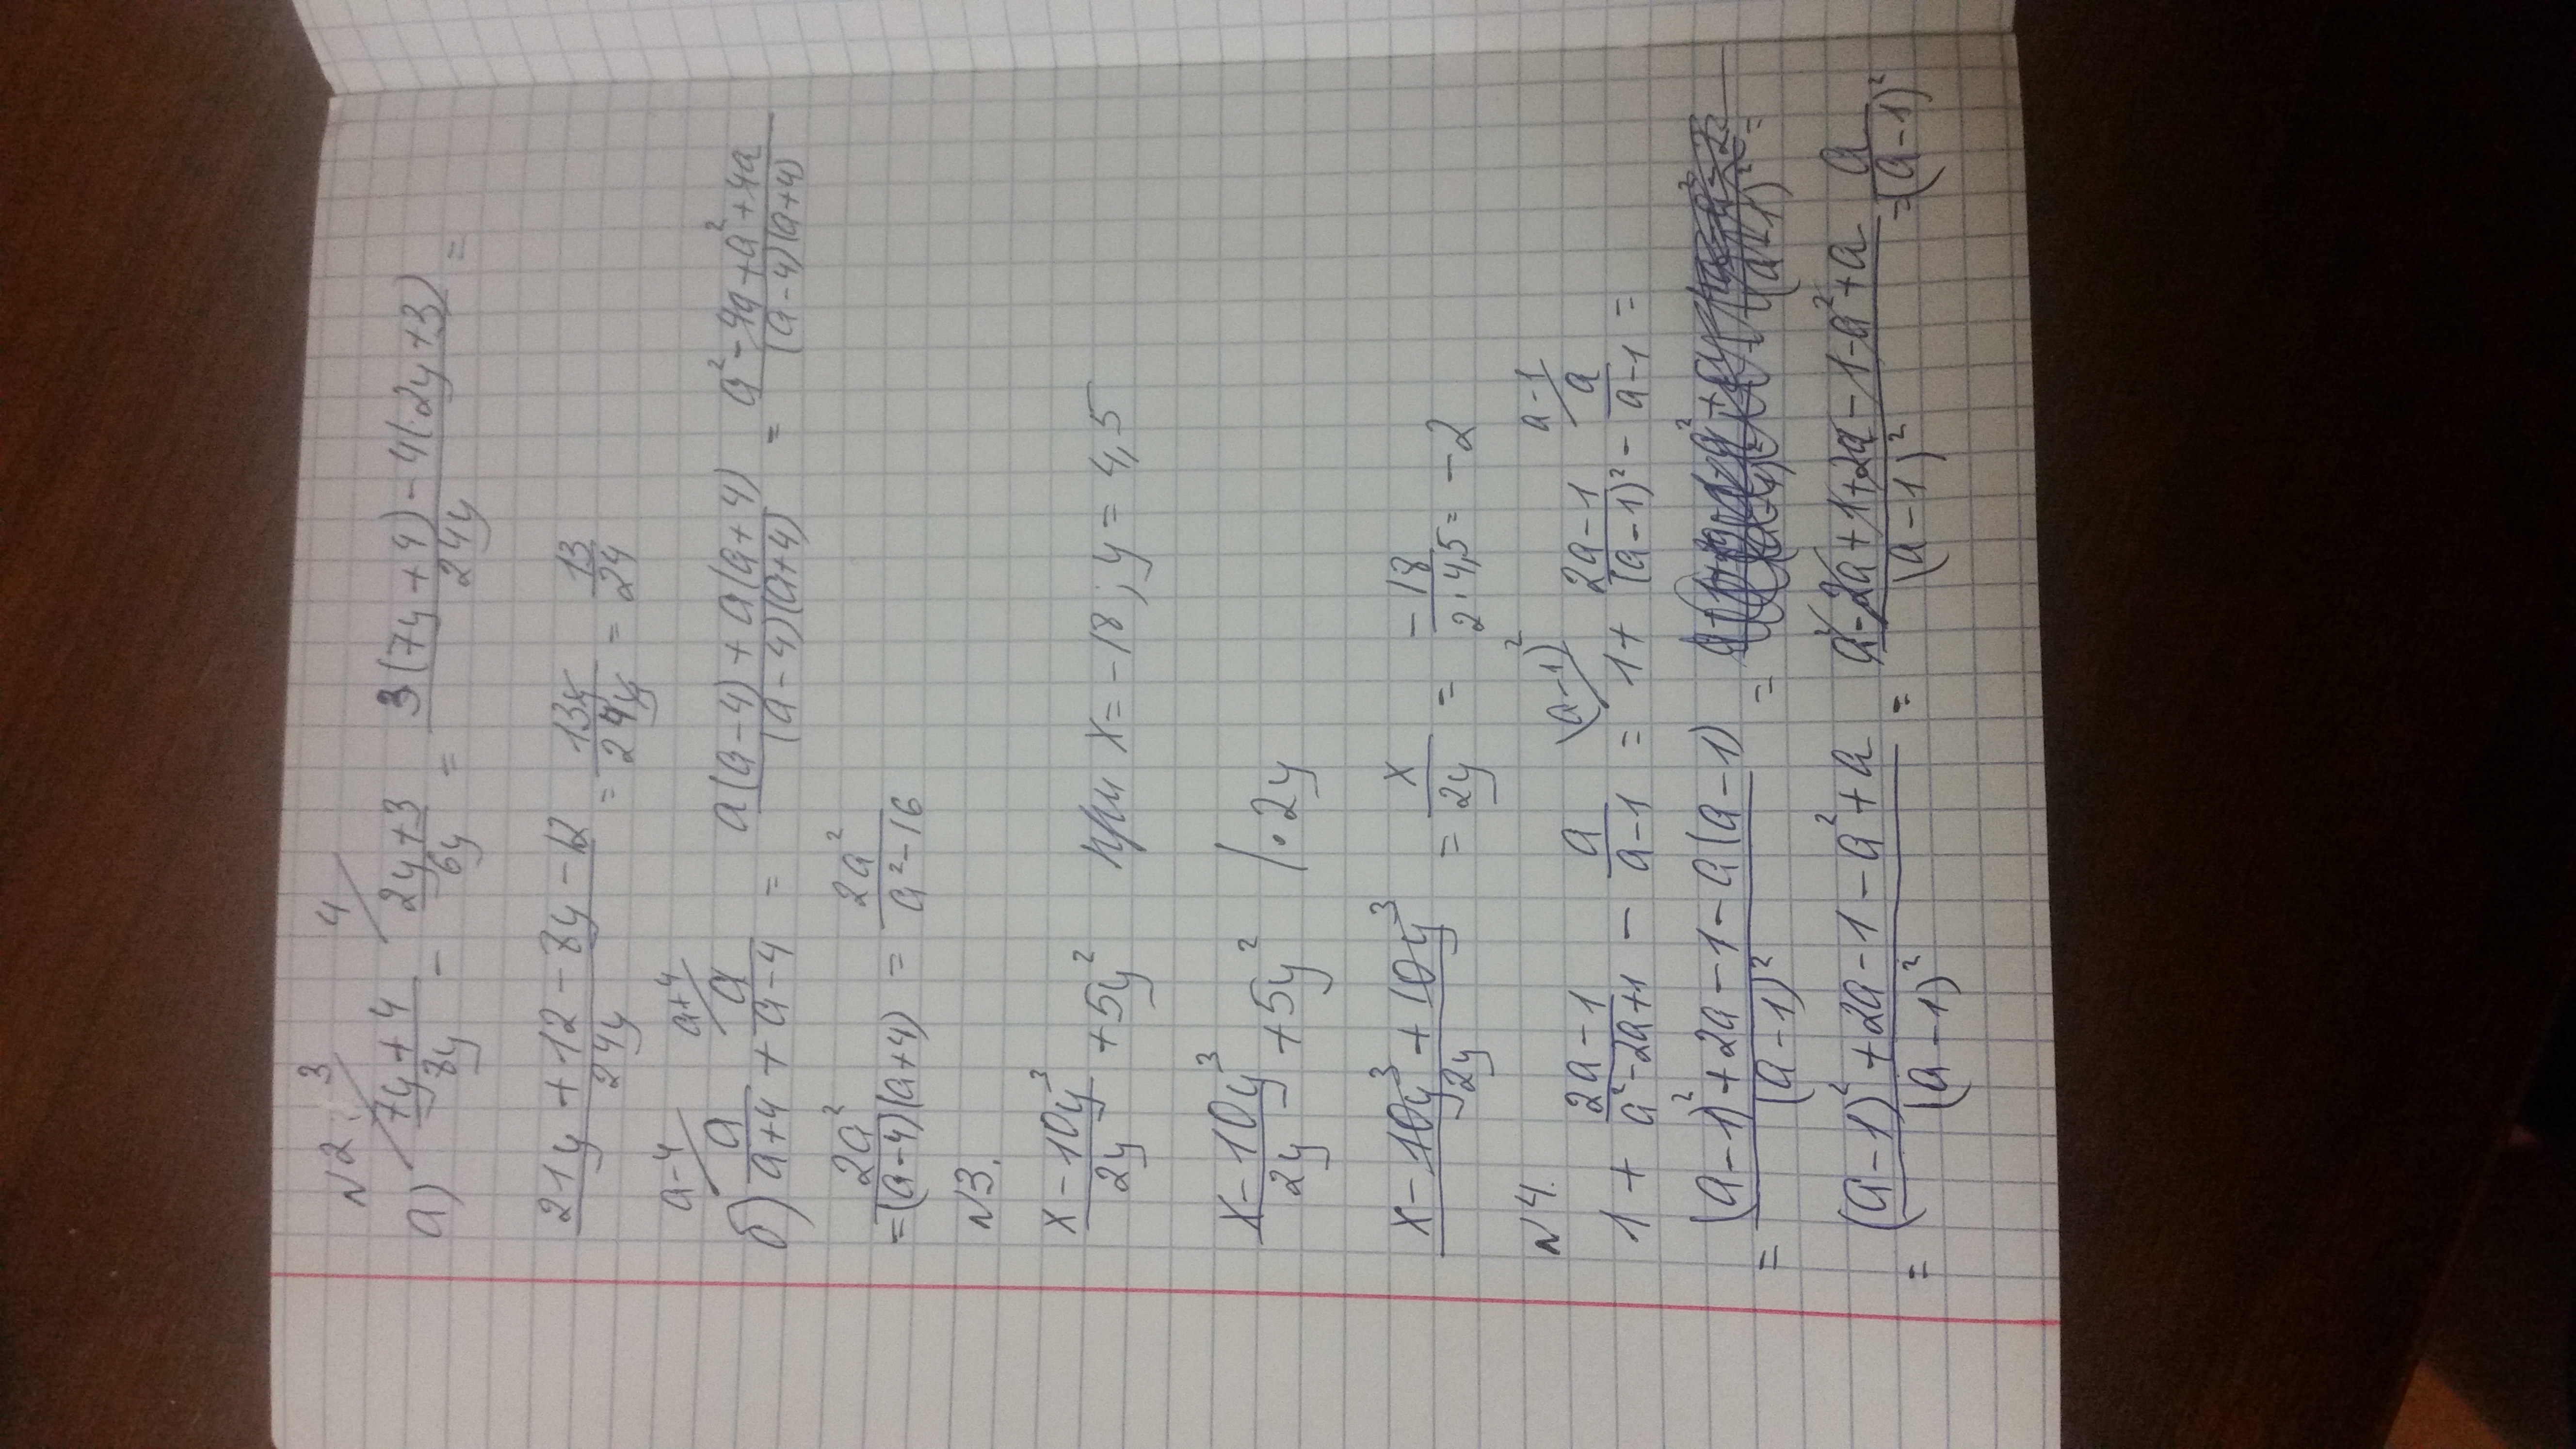 №2.
а) (7y+4)/(8y) [3] − (2y+3)/(6y) [4] = (3(7y+4)−4(2y+3))/(24y) =
(21y+12−8y−12)/(24y) = (13y)/(24y) = 13/24
б) a/(a+4) [a−4] + a/(a−4) [a+4] = (a(a−4)+a(a+4))/((a−4)(a+4)) = (a²−4a+a²+4a)/((a−4)(a+4))
= (2a²)/((a−4)(a+4)) = (2a²)/(a²−16)
№3.
(x−10y³)/(2y) + 5y² при x=−18; y=4,5
(x−10y³)/(2y) + 5y² /·2y
(x−10y³+10y³)/(2y) = x/(2y) = −18/(2·4,5) = −2
№4.
1 + (2a−1)/(a²−2a+1) − a/(a−1) = 1 [(a−1)²] + (2a−1)/((a−1)²) − a/(a−1) [a−1] =
= ((a−1)²+2a−1−a(a−1))/((a−1)²) = =
= ((a−1)²+2a−1−a²+a)/((a−1)²) = (a²−2a+1+2a−1−a²+a)/((a−1)²) = a/((a−1)²)